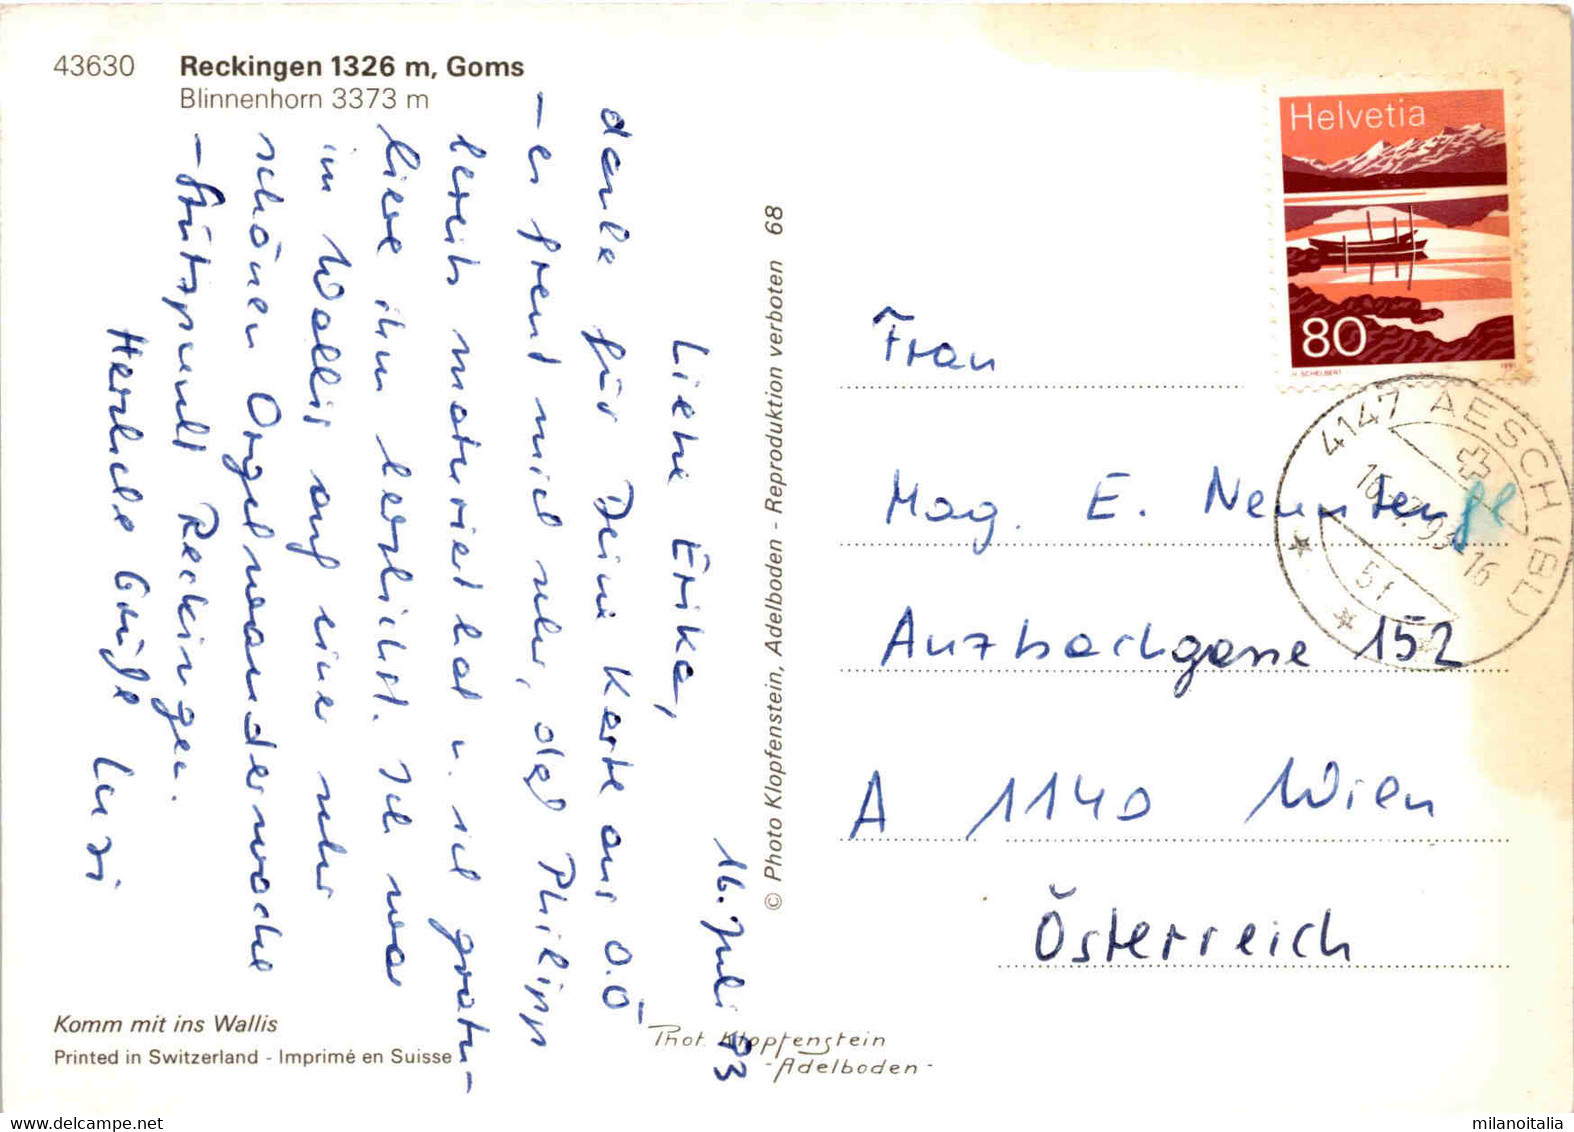 43630 Reckingen 1326 m, Goms
Blinnenhorn 3373 m
16. Juli 93
Liebe Erika,
danke für Deine Karte aus O.Ö
– es freut mich sehr, daß Philipp
bereits maturiert hat u. ich gratu-
liere ihm herzlichst. Ich war
im Wallis auf einer sehr
schönen Orgelwanderwoche
– Stützpunkt Reckingen.
Herzliche Grüße
Komm mit ins Wallis
Printed in Switzerland - Imprimé en Suisse
© Photo Klopfenstein, Adelboden - Reproduktion verboten 68
Phot. Klopfenstein
- Adelboden -
Helvetia
80
H. SCHELBERT 1991
4147 AESCH (BL)
16.-7.93-16
51
Frau
Mag. E.
Auzbachgasse 152
A 1140 Wien
Österreich
milanoitalia